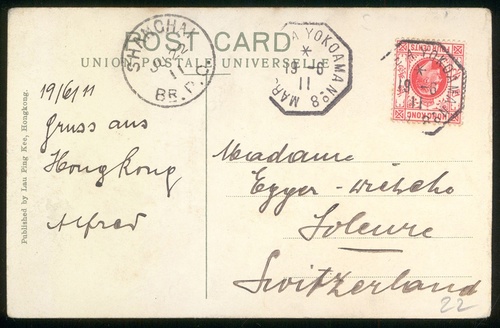 POST CARD
UNION POSTALE UNIVERSELLE
SHANGHAI
BR. P.O.
A YOKOAMA No 8 MAR
*
19 - 6
11
A YOKOAMA
19 - 6
11
HONG KONG
19/6/11
Gruss aus
Hongkong
Alfred
Madame
Egger-
Soleure
Switzerland
22
Published by Lau Ping Kee, Hongkong.